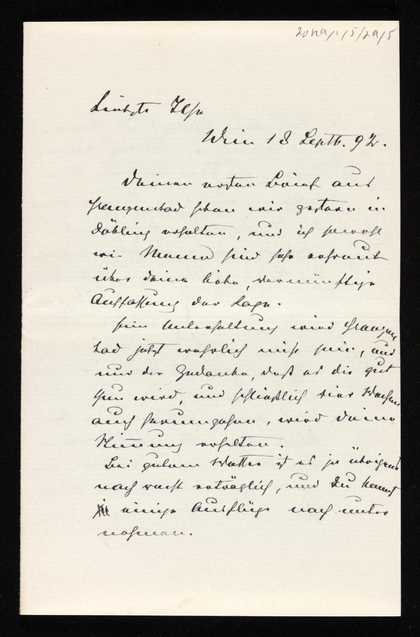 20 Na/1/5/29/5
Liebste Ilse
Wien 18 Septb. 92.
Deinen ersten Brief aus
Franzensbad haben wir gestern in
Döbling erhalten, und ich sowohl
wie Mama sind sehr erfreut
über deine liebe, vernünftige
Auffassung der Lage.
Eine Unterhaltung wird Franzens
bad jetzt wahrlich nicht sein, und
nur der Gedanke, daß es dir gut
thun wird, und schließlich vier Wochen
auch herumgehen, wird deine
Stimmung erhalten.
Bei gutem Wetter ist es ja übrigens
noch recht erträglich, und Du kannst
einige Ausflüge noch unter
nehmen.